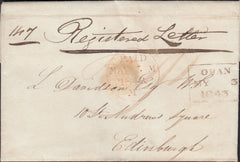 Registered Letter
PAID
OBAN
MY 3
1843
L Davidson Esq
10 St Andrews Square
Edinburgh